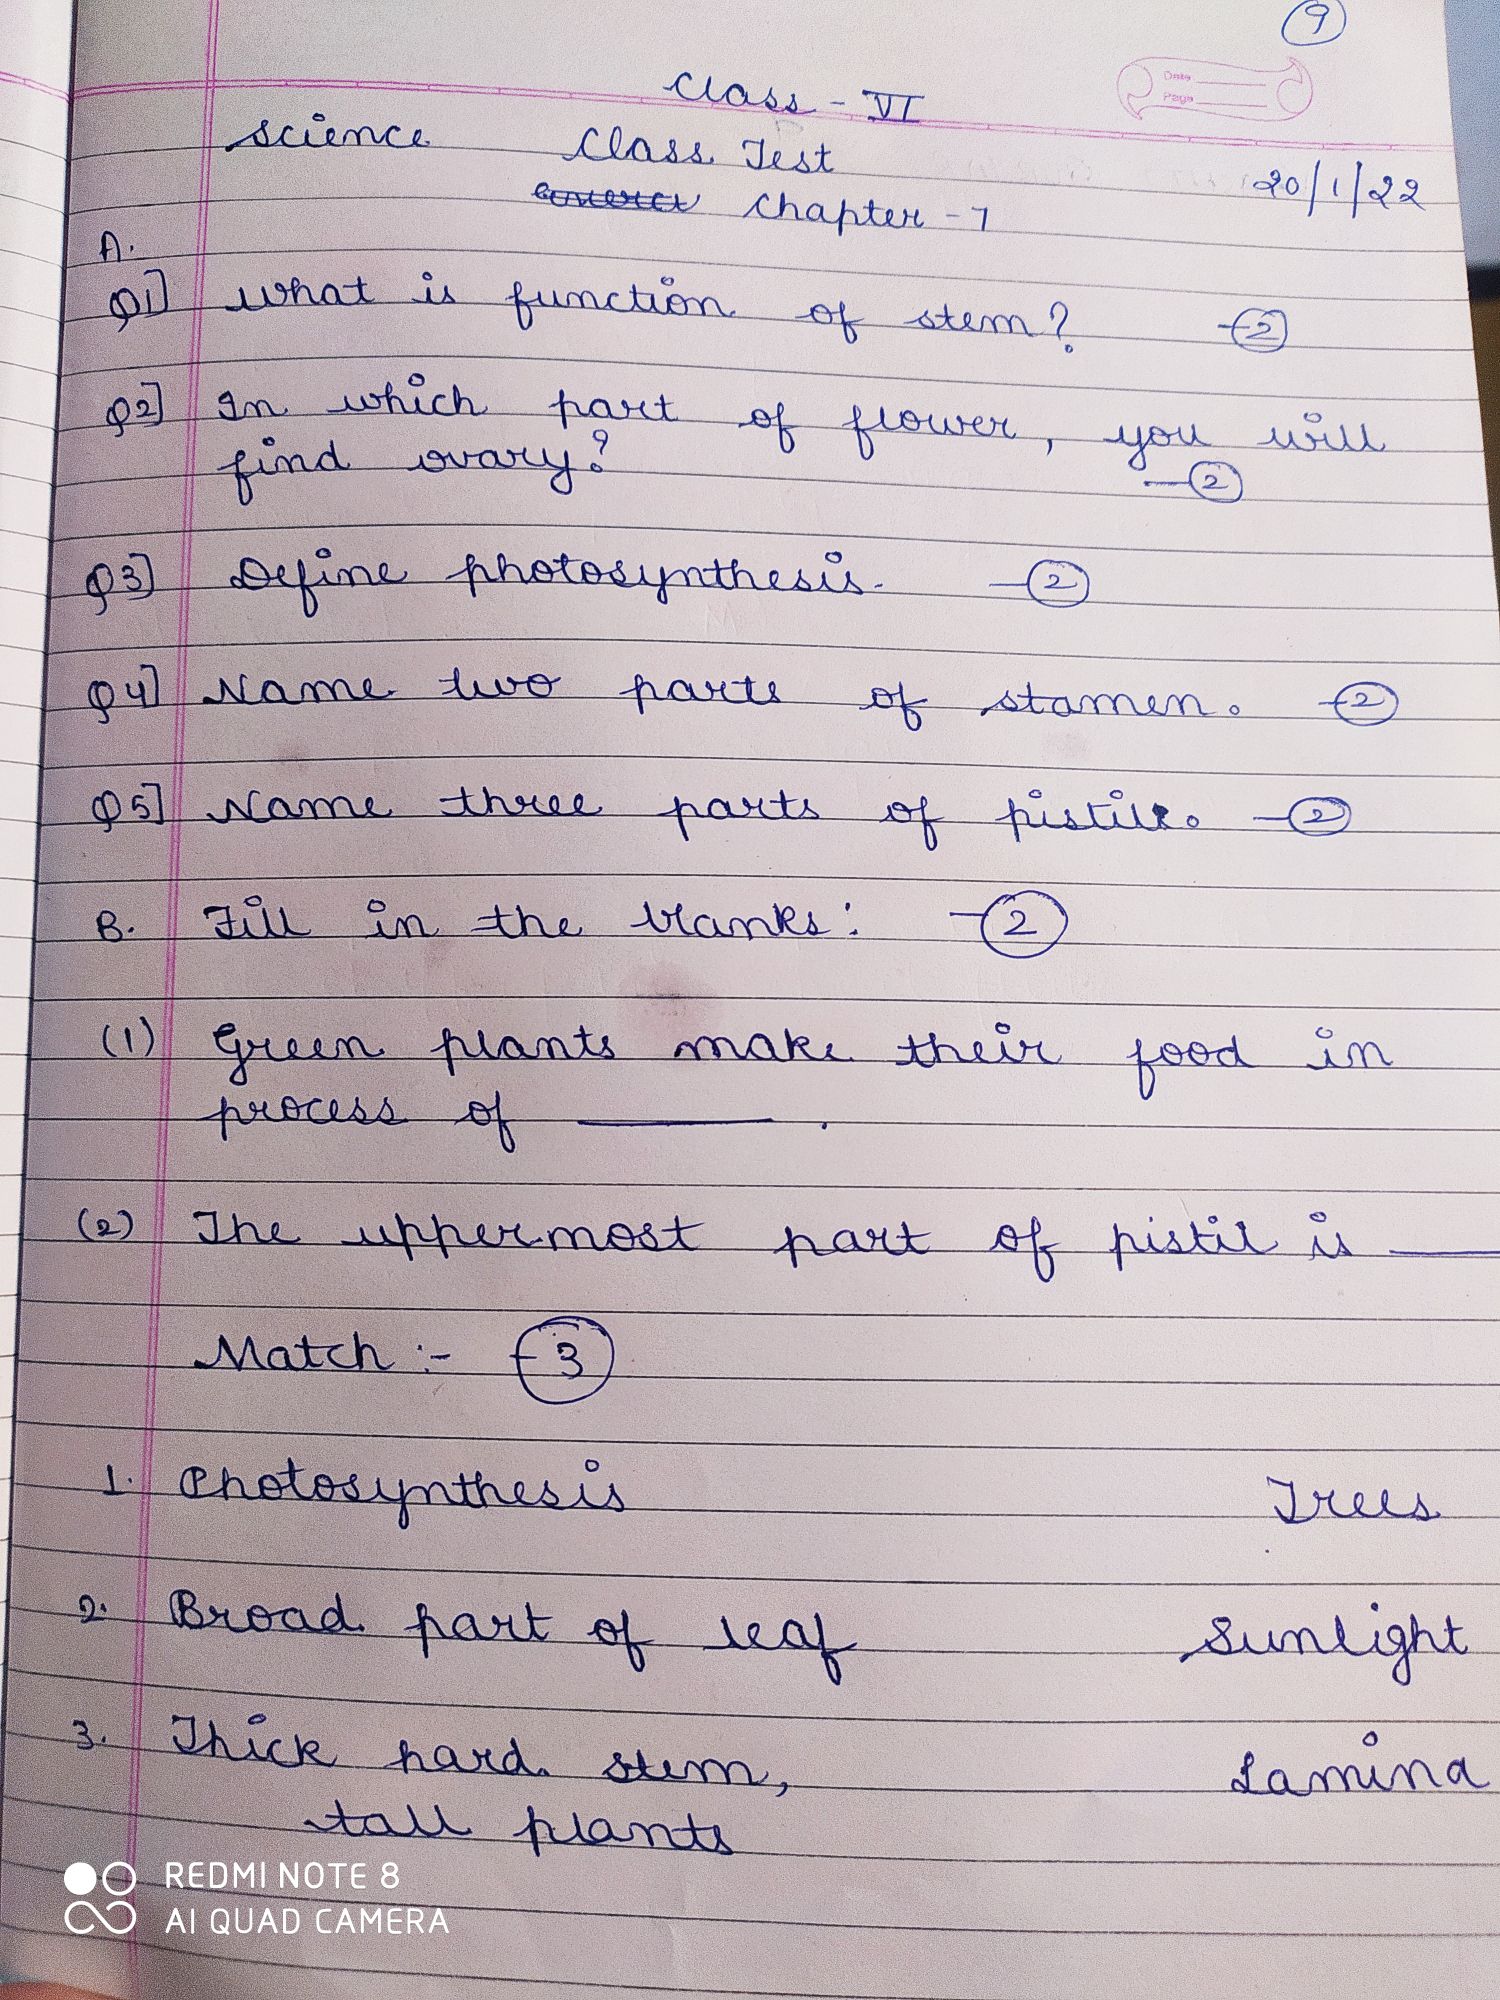 9
Date
Page
Class - VI
Science Class Test
20/1/22
Chapter - 7
A.
Q1] What is function of stem? - 2
Q2] In which part of flower, you will
find ovary? - 2
Q3] Define photosynthesis. - 2
Q4] Name two parts of stamen. - 2
Q5] Name three parts of pistil. - 2
B. Fill in the blanks: - 2
(1) Green plants make their food in
process of ______.
(2) The uppermost part of pistil is ____
Match :- - 3
1. Photosynthesis Trees
2. Broad part of leaf Sunlight
3. Thick hard stem, Lamina
tall plants
REDMI NOTE 8
AI QUAD CAMERA